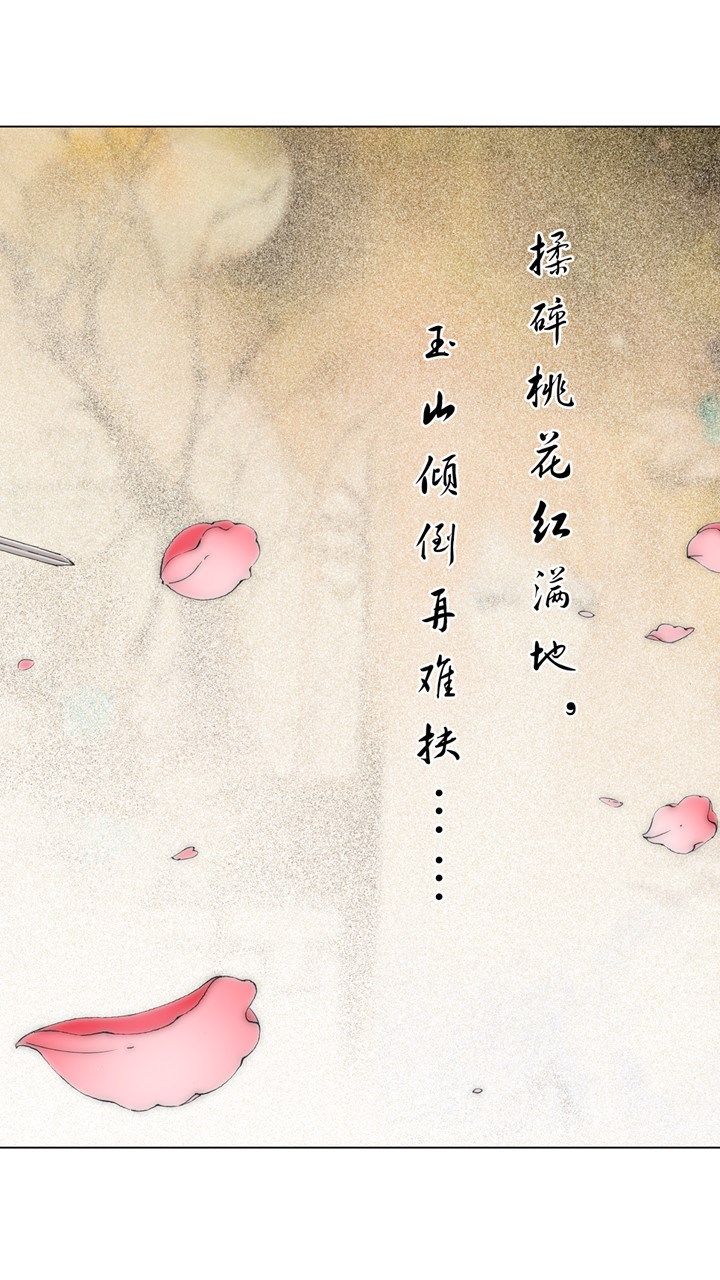 揉碎桃花红满地，
玉山倾倒再难扶……